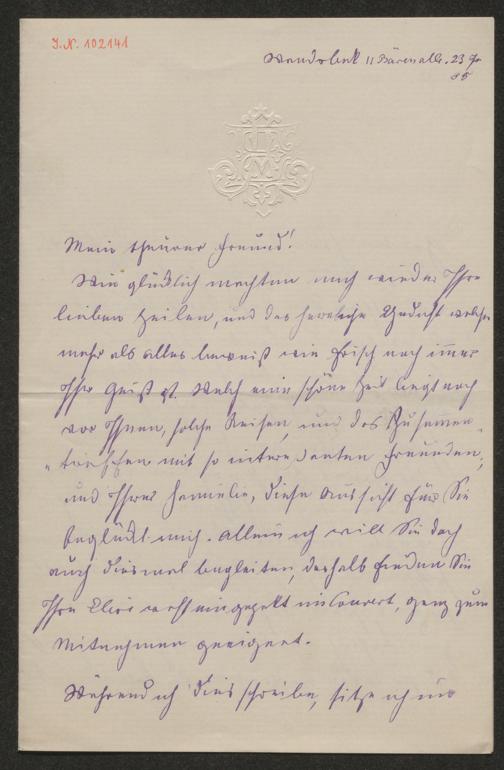 J.N. 102141
Wandsbek 11 Bärenallee. 23
85
Mein theurer Freund!
Wie glücklich machten mich wieder Ihre
lieben Zeilen, und das herrliche Gedicht welches
mehr als alles beweist wie frisch noch immer
Ihr Geist ist. Welch eine schöne Zeit liegt noch
vor Ihnen, solche Reisen, und das Zusammen-
treffen mit so interessanten Freunden,
und Ihrer Familie, diese Aussicht für Sie
beglückt mich. Allein ich will Sie doch
auch diesmal begleiten, deshalb finden Sie
Ihre recht eingepackt im Couvert, ganz zum
Mitnehmen geeignet.
Während ich dies schreibe, sitze ich im